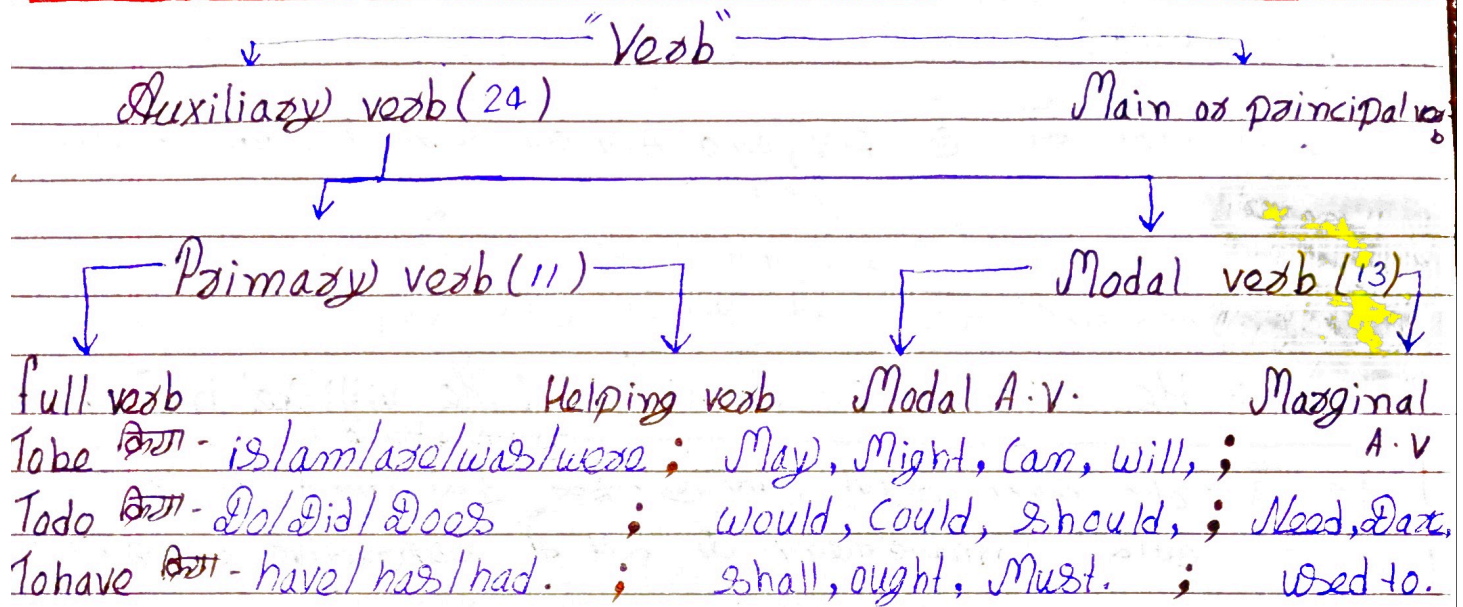 "Verb"
Auxiliary verb (24) Main or principal verb
Primary verb (11) Modal verb (13)
full verb Helping verb Modal A.V. Marginal A.V
To be क्रिया - is/am/are/was/were ; May, Might, Can, will, ;
To do क्रिया - Do/Did/Does ; would, Could, Should, ; Need, Dare,
To have क्रिया - have/has/had. ; shall, ought, Must. ; used to.